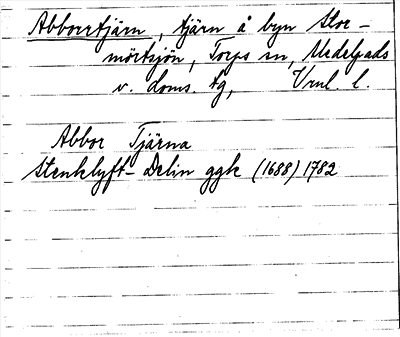 Abborrtjärn, tjärn å byn Stor-
mörtsjön, Torps sn, Medelpads
v. doms. tg, Vrnl. l.
Abbor Tjärna
Stenklyft- Delin ggk (1688) 1782